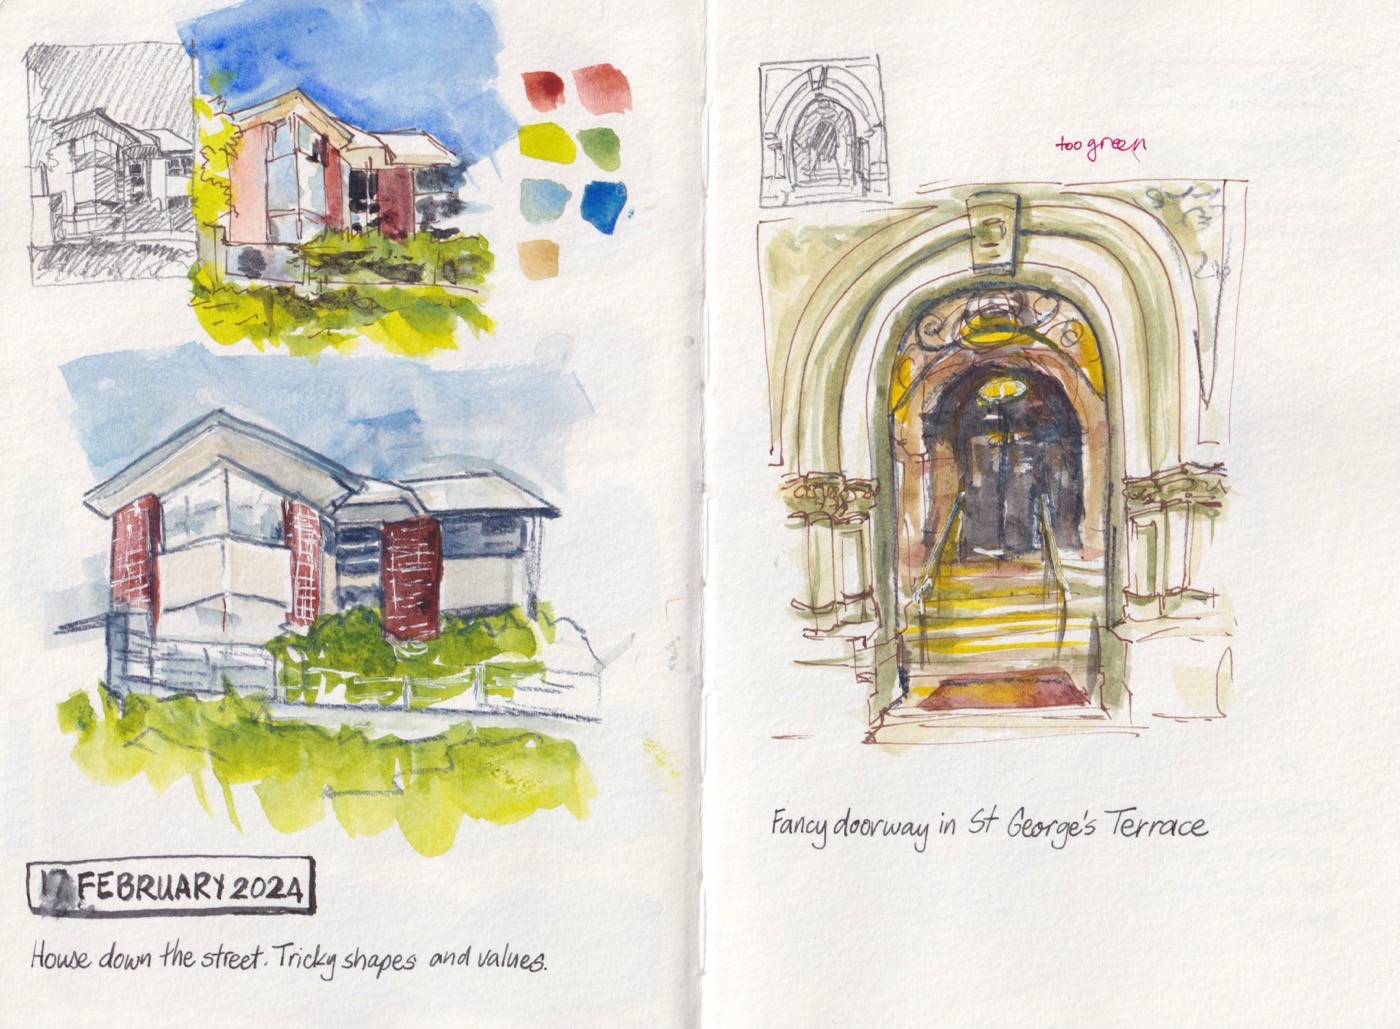 too green
17 FEBRUARY 2024
House down the street. Tricky shapes and values.
Fancy doorway in St George's Terrace